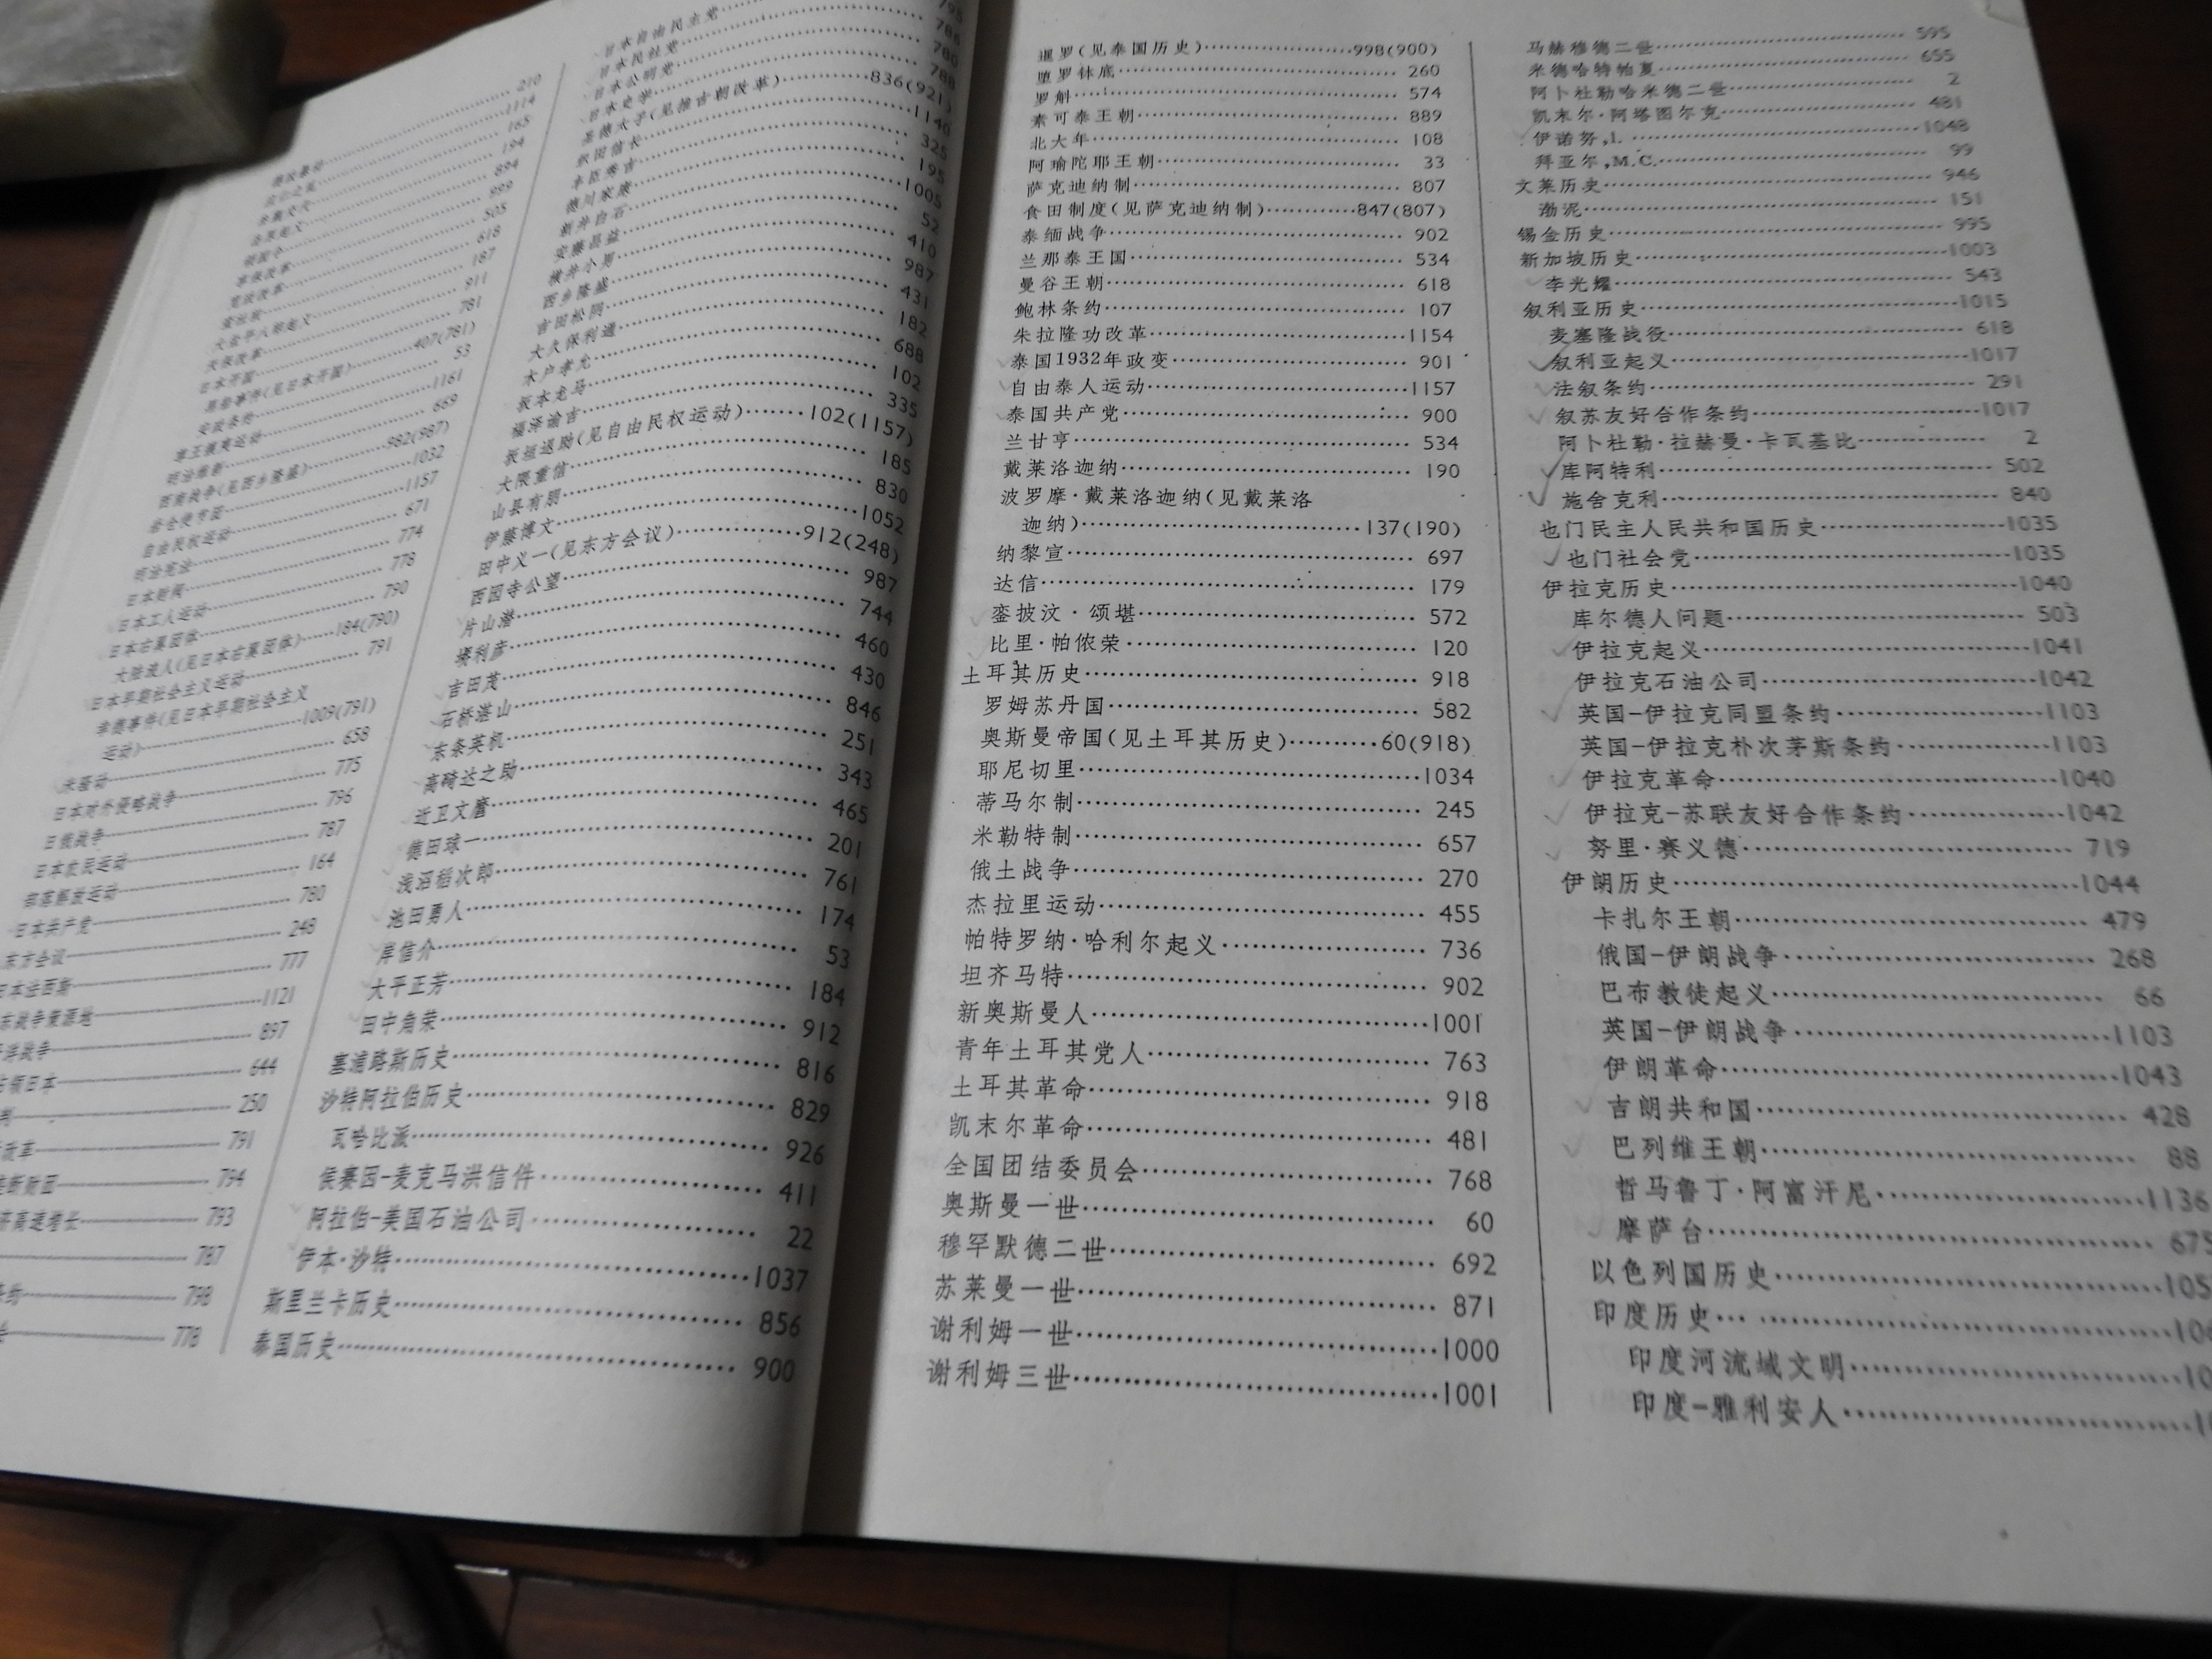 210
1114
165
194
894
999
505
618
187
大盐平八郎起义 911
天保改革 781
日本开国 407(781)
黑船事件(见日本开国) 53
安政条约 1161
尊王攘夷运动 669
明治维新 982(987)
西南战争(见西乡隆盛) 1032
岩仓使节团 1157
自由民权运动 671
明治宪法 774
日本财阀 778
日本工人运动 790
日本右翼团体 184(790)
大陆浪人(见日本右翼团体) 791
日本早期社会主义运动
幸德事件(见日本早期社会主义
运动) 1009(791)
米骚动 658
日本对外侵略战争 775
日俄战争 796
日本农民运动 787
部落解放运动 164
日本共产党 780
东方会议 248
日本法西斯 777
1121
897
占领日本 644
250
改革 791
垄断财团 794
济高速增长 793
787
798
778
日本自由民主党 795
日本民社党 786
日本公明党 780
日本史学 788
圣德太子(见推古朝改革) 836(921)
织田信长 1140
丰臣秀吉 325
德川家康 195
新井白石 1005
安藤昌益 52
横井小男 410
西乡隆盛 987
吉田松阴 431
大久保利通 182
木户孝允 688
坂本龙马 102
福泽谕吉 335
板垣退助(见自由民权运动) 102(1157)
大隈重信 185
山县有朋 830
伊藤博文 1052
田中义一(见东方会议) 912(248)
西园寺公望 987
片山潜 744
堺利彦 460
吉田茂 430
石桥湛山 846
东条英机 251
高碕达之助 343
近卫文麿 465
德田球一 201
浅沼稻次郎 761
池田勇人 174
岸信介 53
大平正芳 184
田中角荣 912
塞浦路斯历史 816
沙特阿拉伯历史 829
瓦哈比派 926
侯赛因-麦克马洪信件 411
阿拉伯-美国石油公司 22
伊本·沙特 1037
斯里兰卡历史 856
泰国历史 900
暹罗(见泰国历史) 998(900)
堕罗钵底 260
罗斛 574
素可泰王朝 889
北大年 108
阿瑜陀耶王朝 33
萨克迪纳制 807
食田制度(见萨克迪纳制) 847(807)
泰缅战争 902
兰那泰王国 534
曼谷王朝 618
鲍林条约 107
朱拉隆功改革 1154
泰国1932年政变 901
自由泰人运动 1157
泰国共产党 900
兰甘亨 534
戴莱洛迦纳 190
波罗摩·戴莱洛迦纳(见戴莱洛
迦纳) 137(190)
纳黎宣 697
达信 179
銮披汶·颂堪 572
比里·帕侬荣 120
土耳其历史 918
罗姆苏丹国 582
奥斯曼帝国(见土耳其历史) 60(918)
耶尼切里 1034
蒂马尔制 245
米勒特制 657
俄土战争 270
杰拉里运动 455
帕特罗纳·哈利尔起义 736
坦齐马特 902
新奥斯曼人 1001
青年土耳其党人 763
土耳其革命 918
凯末尔革命 481
全国团结委员会 768
奥斯曼一世 60
穆罕默德二世 692
苏莱曼一世 871
谢利姆一世 1000
谢利姆三世 1001
马赫穆德二世 595
米德哈特帕夏 655
阿卜杜勒哈米德二世 2
凯末尔·阿塔图尔克 481
伊诺努,I. 1048
拜亚尔,M.C. 99
文莱历史 946
渤泥 151
锡金历史 995
新加坡历史 1003
李光耀 543
叙利亚历史 1015
麦塞隆战役 618
叙利亚起义 1017
法叙条约 291
叙苏友好合作条约 1017
阿卜杜勒·拉赫曼·卡瓦基比 2
库阿特利 502
施舍克利 840
也门民主人民共和国历史 1035
也门社会党 1035
伊拉克历史 1040
库尔德人问题 503
伊拉克起义 1041
伊拉克石油公司 1042
英国-伊拉克同盟条约 1103
英国-伊拉克朴次茅斯条约 1103
伊拉克革命 1040
伊拉克-苏联友好合作条约 1042
努里·赛义德 719
伊朗历史 1044
卡扎尔王朝 479
俄国-伊朗战争 268
巴布教徒起义 66
英国-伊朗战争 1103
伊朗革命 1043
吉朗共和国 428
巴列维王朝 88
哲马鲁丁·阿富汗尼 1136
摩萨台 675
以色列国历史 105
印度历史 106
印度河流域文明 10
印度-雅利安人 1